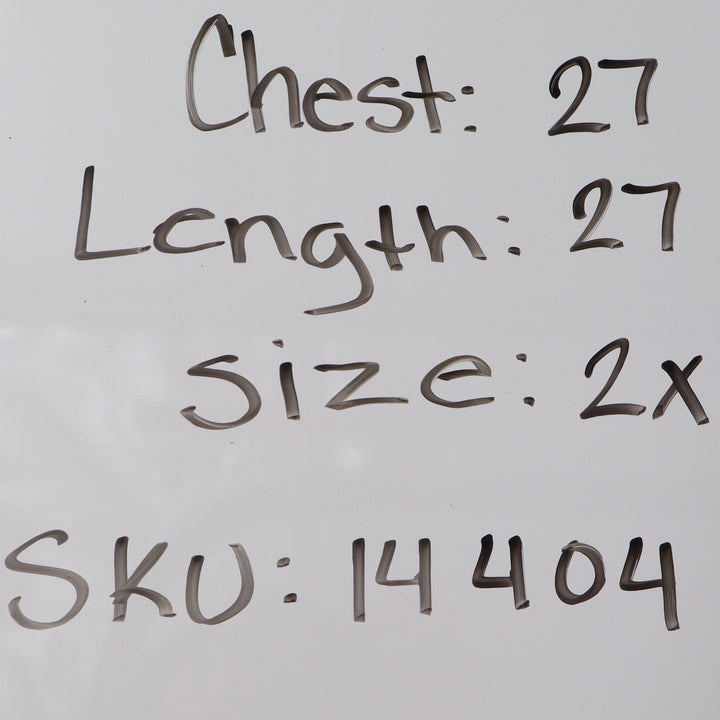 Chest: 27
Length: 27
Size: 2x
SKU: 14404